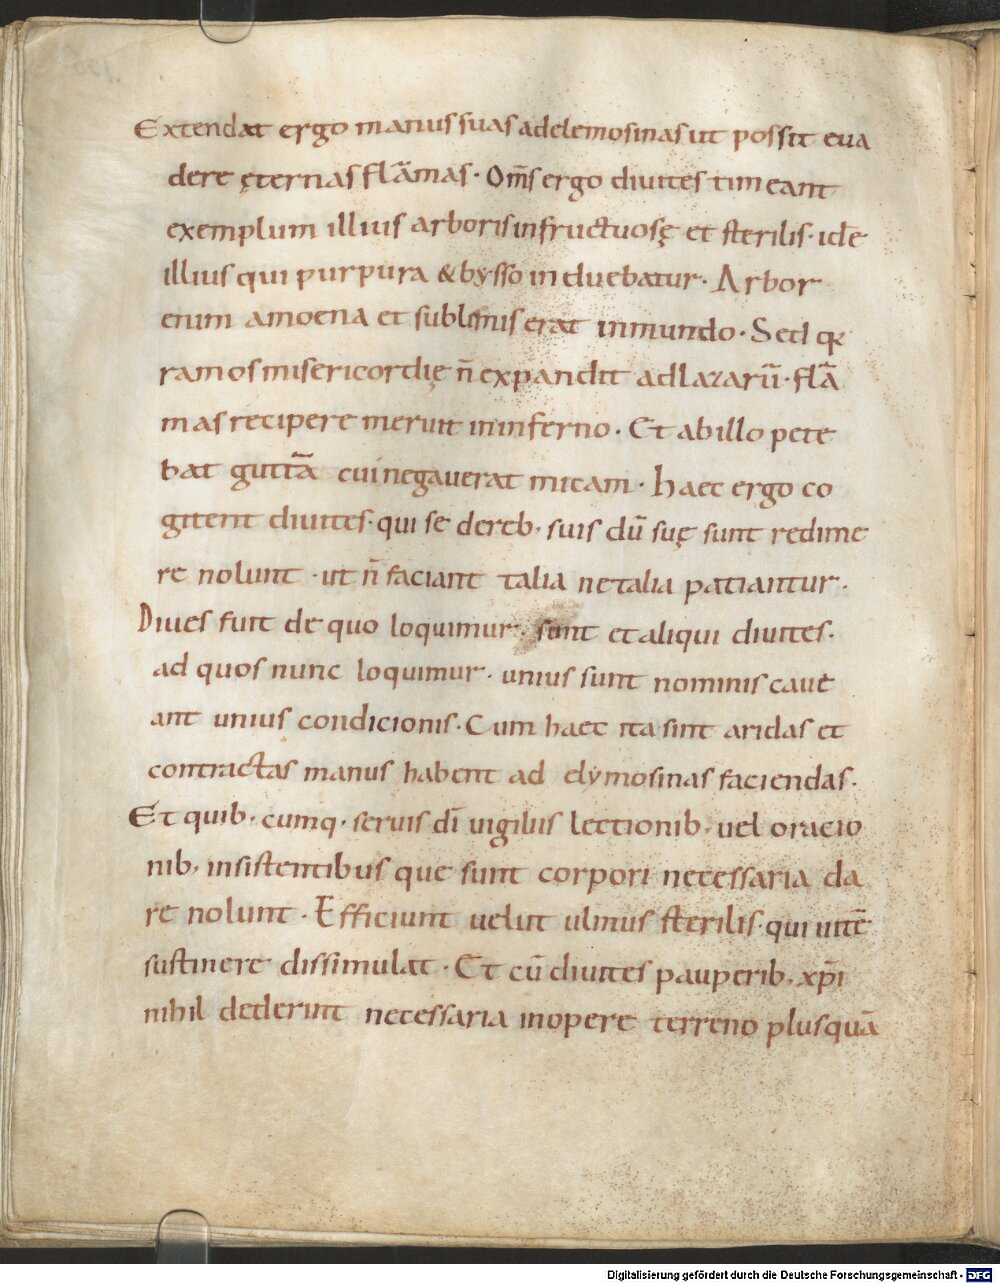 Extendat ergo manus suas ad elemosinas ut possit eua
dere ęternas flāmas · Om̄s ergo diuites timeant
exemplum illius arboris infructuosę et sterilis · idē
illius qui purpura & bysso induebatur · Arbor
enim amoena et sublimis erat in mundo · Sed q
ramos misericordię n̄ expandit ad lazarū · flā
mas recipere meruit in inferno · Et ab illo pete
bat guttā cui negauerat micam · haec ergo co
gitent diuites · qui se de reb · suis dū suę sunt redime
re nolunt · ut n̄ faciant talia ne talia patiantur ·
Diues fuit de quo loquimur · sunt et aliqui diuites ·
ad quos nunc loquimur · unius sunt nominis caue
ant unius condicionis · Cum haec ita sint aridas et
contractas manus habent ad elymosinas faciendas ·
Et quib · cumq · seruis dī uigiliis lectionib · uel oracio
nib · insistentibus que sunt corpori necessaria da
re nolunt · Efficiunt uelut ulmus sterilis · qui uitē
sustinere dissimulat · Et cū diuites pauperib · xp̄i
nihil dederint necessaria in opere terreno plusquā
Digitalisierung gefördert durch die Deutsche Forschungsgemeinschaft - DFG